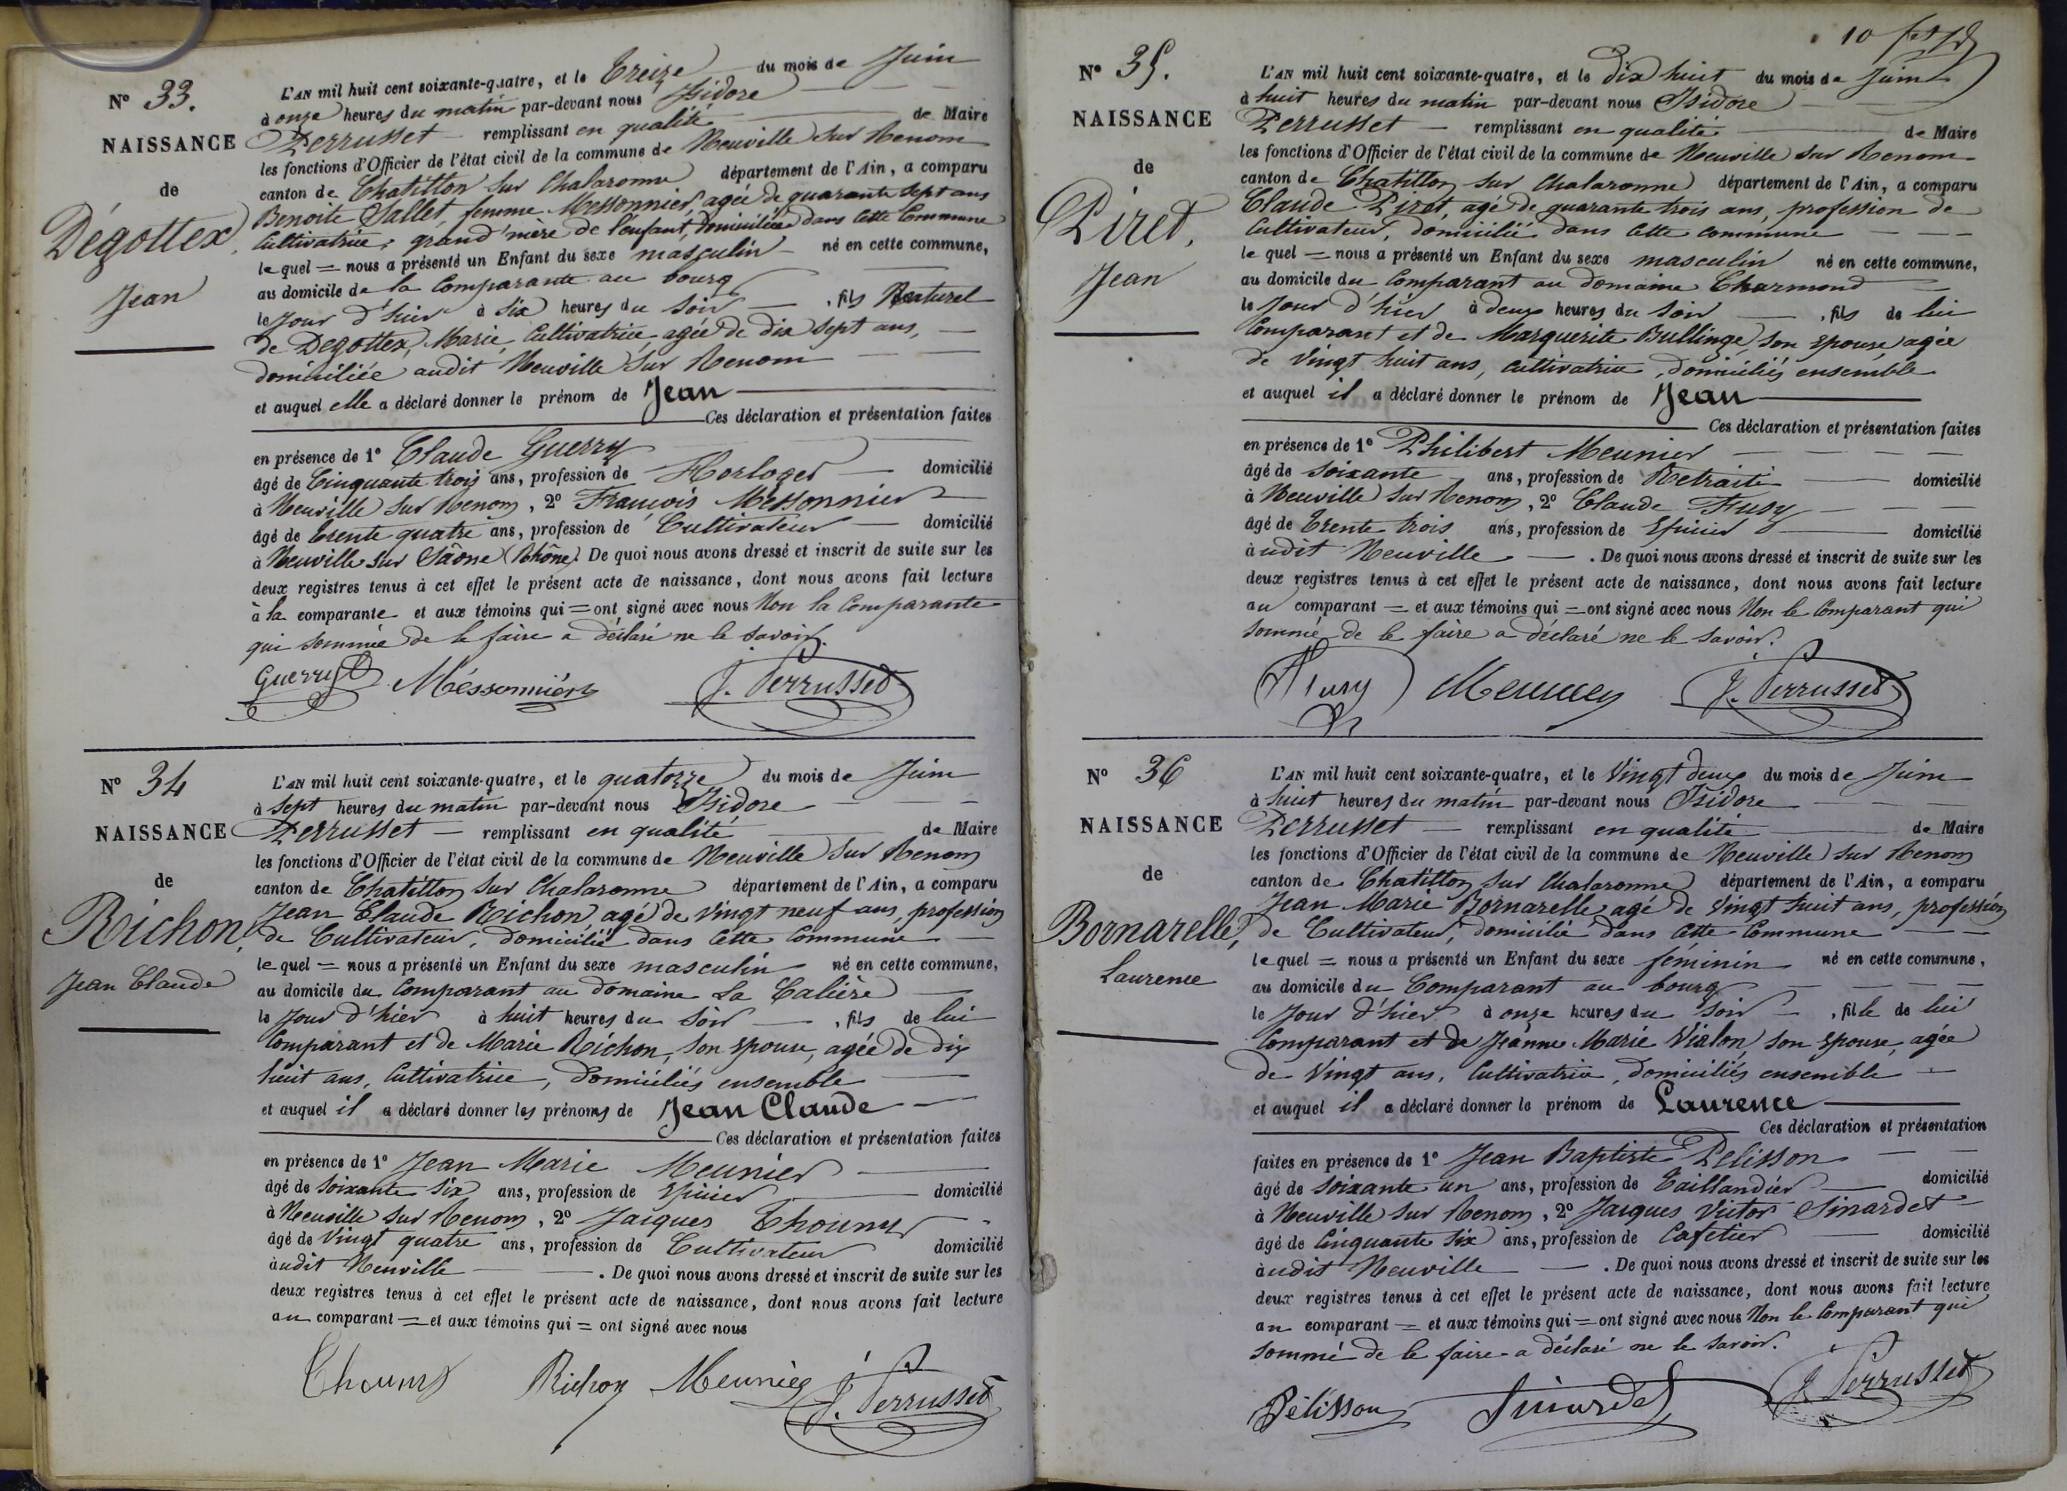 N° 33.
NAISSANCE
de
Dégottex,
Jean
L'AN mil huit cent soixante-quatre, et le Treize du mois de Juin
à onze heures du matin par-devant nous Isidore
Perrusset remplissant en qualité de Maire
les fonctions d'Officier de l'état civil de la commune de Neuville sur Renom
canton de Chatillon sur Chalaronne département de l'Ain, a comparu
Benoite Sallet, femme Messonnier, agée de quarante sept ans
Cultivatrice, grand'mère de l'enfant, domiciliée dans cette Commune
lequel = nous a présenté un Enfant du sexe masculin né en cette commune,
au domicile de la Comparante au bourg
le jour d'hier à six heures du soir, fils Naturel
de Degottex, Marie, Cultivatrice agée de dix sept ans,
domiciliée audit Neuville sur Renom
et auquel elle a déclaré donner le prénom de Jean
Ces déclaration et présentation faites
en présence de 1° Claude Guerry
âgé de Cinquante trois ans, profession de Horloger domicilié
à Neuville sur Renom, 2° François Messonnier
âgé de trente quatre ans, profession de Cultivateur domicilié
à Neuville sur Saône (Rhône). De quoi nous avons dressé et inscrit de suite sur les
deux registres tenus à cet effet le présent acte de naissance, dont nous avons fait lecture
à la comparante et aux témoins qui = ont signé avec nous Non la Comparante
qui sommée de le faire a déclaré ne le savoir.
Guerry Méssonniér J. Perrusset
N° 34
NAISSANCE
de
Richon,
Jean Claude
L'AN mil huit cent soixante-quatre, et le quatorze du mois de Juin
à sept heures du matin par-devant nous Isidore
Perrusset remplissant en qualité de Maire
les fonctions d'Officier de l'état civil de la commune de Neuville sur Renom
canton de Chatillon sur Chalaronne département de l'Ain, a comparu
Jean Claude Richon, agé de vingt neuf ans, profession
de Cultivateur, domicilié dans cette Commune
lequel = nous a présenté un Enfant du sexe masculin né en cette commune,
au domicile du Comparant au domaine La Calière
le jour d'hier à huit heures du soir, fils de lui
Comparant et de Marie Richon, son épouse, agée de dix
huit ans, Cultivatrice, domiciliés ensemble
et auquel il a déclaré donner les prénoms de Jean Claude
Ces déclaration et présentation faites
en présence de 1° Jean Marie Meunier
âgé de soixante six ans, profession de Epicier domicilié
à Neuville sur Renom, 2° Jacques Thouny
âgé de vingt quatre ans, profession de Cultivateur domicilié
audit Neuville. De quoi nous avons dressé et inscrit de suite sur les
deux registres tenus à cet effet le présent acte de naissance, dont nous avons fait lecture
au comparant = et aux témoins qui = ont signé avec nous
Richon Meunier J. Perrusset
10
N° 35.
NAISSANCE
de
Piret,
Jean
L'AN mil huit cent soixante-quatre, et le dix huit du mois de Juin
à huit heures du matin par-devant nous Isidore
Perrusset remplissant en qualité de Maire
les fonctions d'Officier de l'état civil de la commune de Neuville sur Renom
canton de Chatillon sur Chalaronne département de l'Ain, a comparu
Claude Piret, agé de quarante trois ans, profession de
Cultivateur, domicilié dans cette commune
lequel = nous a présenté un Enfant du sexe masculin né en cette commune,
au domicile du Comparant au domaine Charmond
le jour d'hier à deux heures du soir, fils de lui
Comparant et de Marguerite Bullinge, son épouse agée
de vingt huit ans, cultivatrice, domiciliés ensemble
et auquel il a déclaré donner le prénom de Jean
Ces déclaration et présentation faites
en présence de 1° Philibert Meunier
âgé de soixante ans, profession de Retraité domicilié
à Neuville sur Renom, 2° Claude Fusy
âgé de trente trois ans, profession de Epicier domicilié
audit Neuville. De quoi nous avons dressé et inscrit de suite sur les
deux registres tenus à cet effet le présent acte de naissance, dont nous avons fait lecture
au comparant = et aux témoins qui = ont signé avec nous Non le Comparant qui
sommé de le faire a déclaré ne le savoir.
Fusy Meunier J. Perrusset
N° 36
NAISSANCE
de
Bornarelle,
Laurence
L'AN mil huit cent soixante-quatre, et le Vingt deux du mois de Juin
à huit heures du matin par-devant nous Isidore
Perrusset remplissant en qualité de Maire
les fonctions d'Officier de l'état civil de la commune de Neuville sur Renom
canton de Chatillon sur Chalaronne département de l'Ain, a comparu
Jean Marie Bornarelle agé de vingt huit ans, profession
de Cultivateur, domicilié dans cette Commune
lequel = nous a présenté un Enfant du sexe féminin né en cette commune,
au domicile du Comparant au bourg
le jour d'hier à onze heures du soir, fille de lui
Comparant et de Jeanne Marie Vialon, son épouse, agée
de vingt ans, Cultivatrice, domiciliés ensemble
et auquel il a déclaré donner le prénom de Laurence
Ces déclaration et présentation
faites en présence de 1° Jean Baptiste Pelisson
âgé de soixante un ans, profession de Taillandier domicilié
à Neuville sur Renom, 2° Jacques Victor Sinardet
âgé de Cinquante six ans, profession de Cafetier domicilié
audit Neuville. De quoi nous avons dressé et inscrit de suite sur les
deux registres tenus à cet effet le présent acte de naissance, dont nous avons fait lecture
au comparant = et aux témoins qui = ont signé avec nous Non le Comparant qui
sommé de le faire a déclaré ne le savoir.
Pélisson Sinardet J. Perrusset